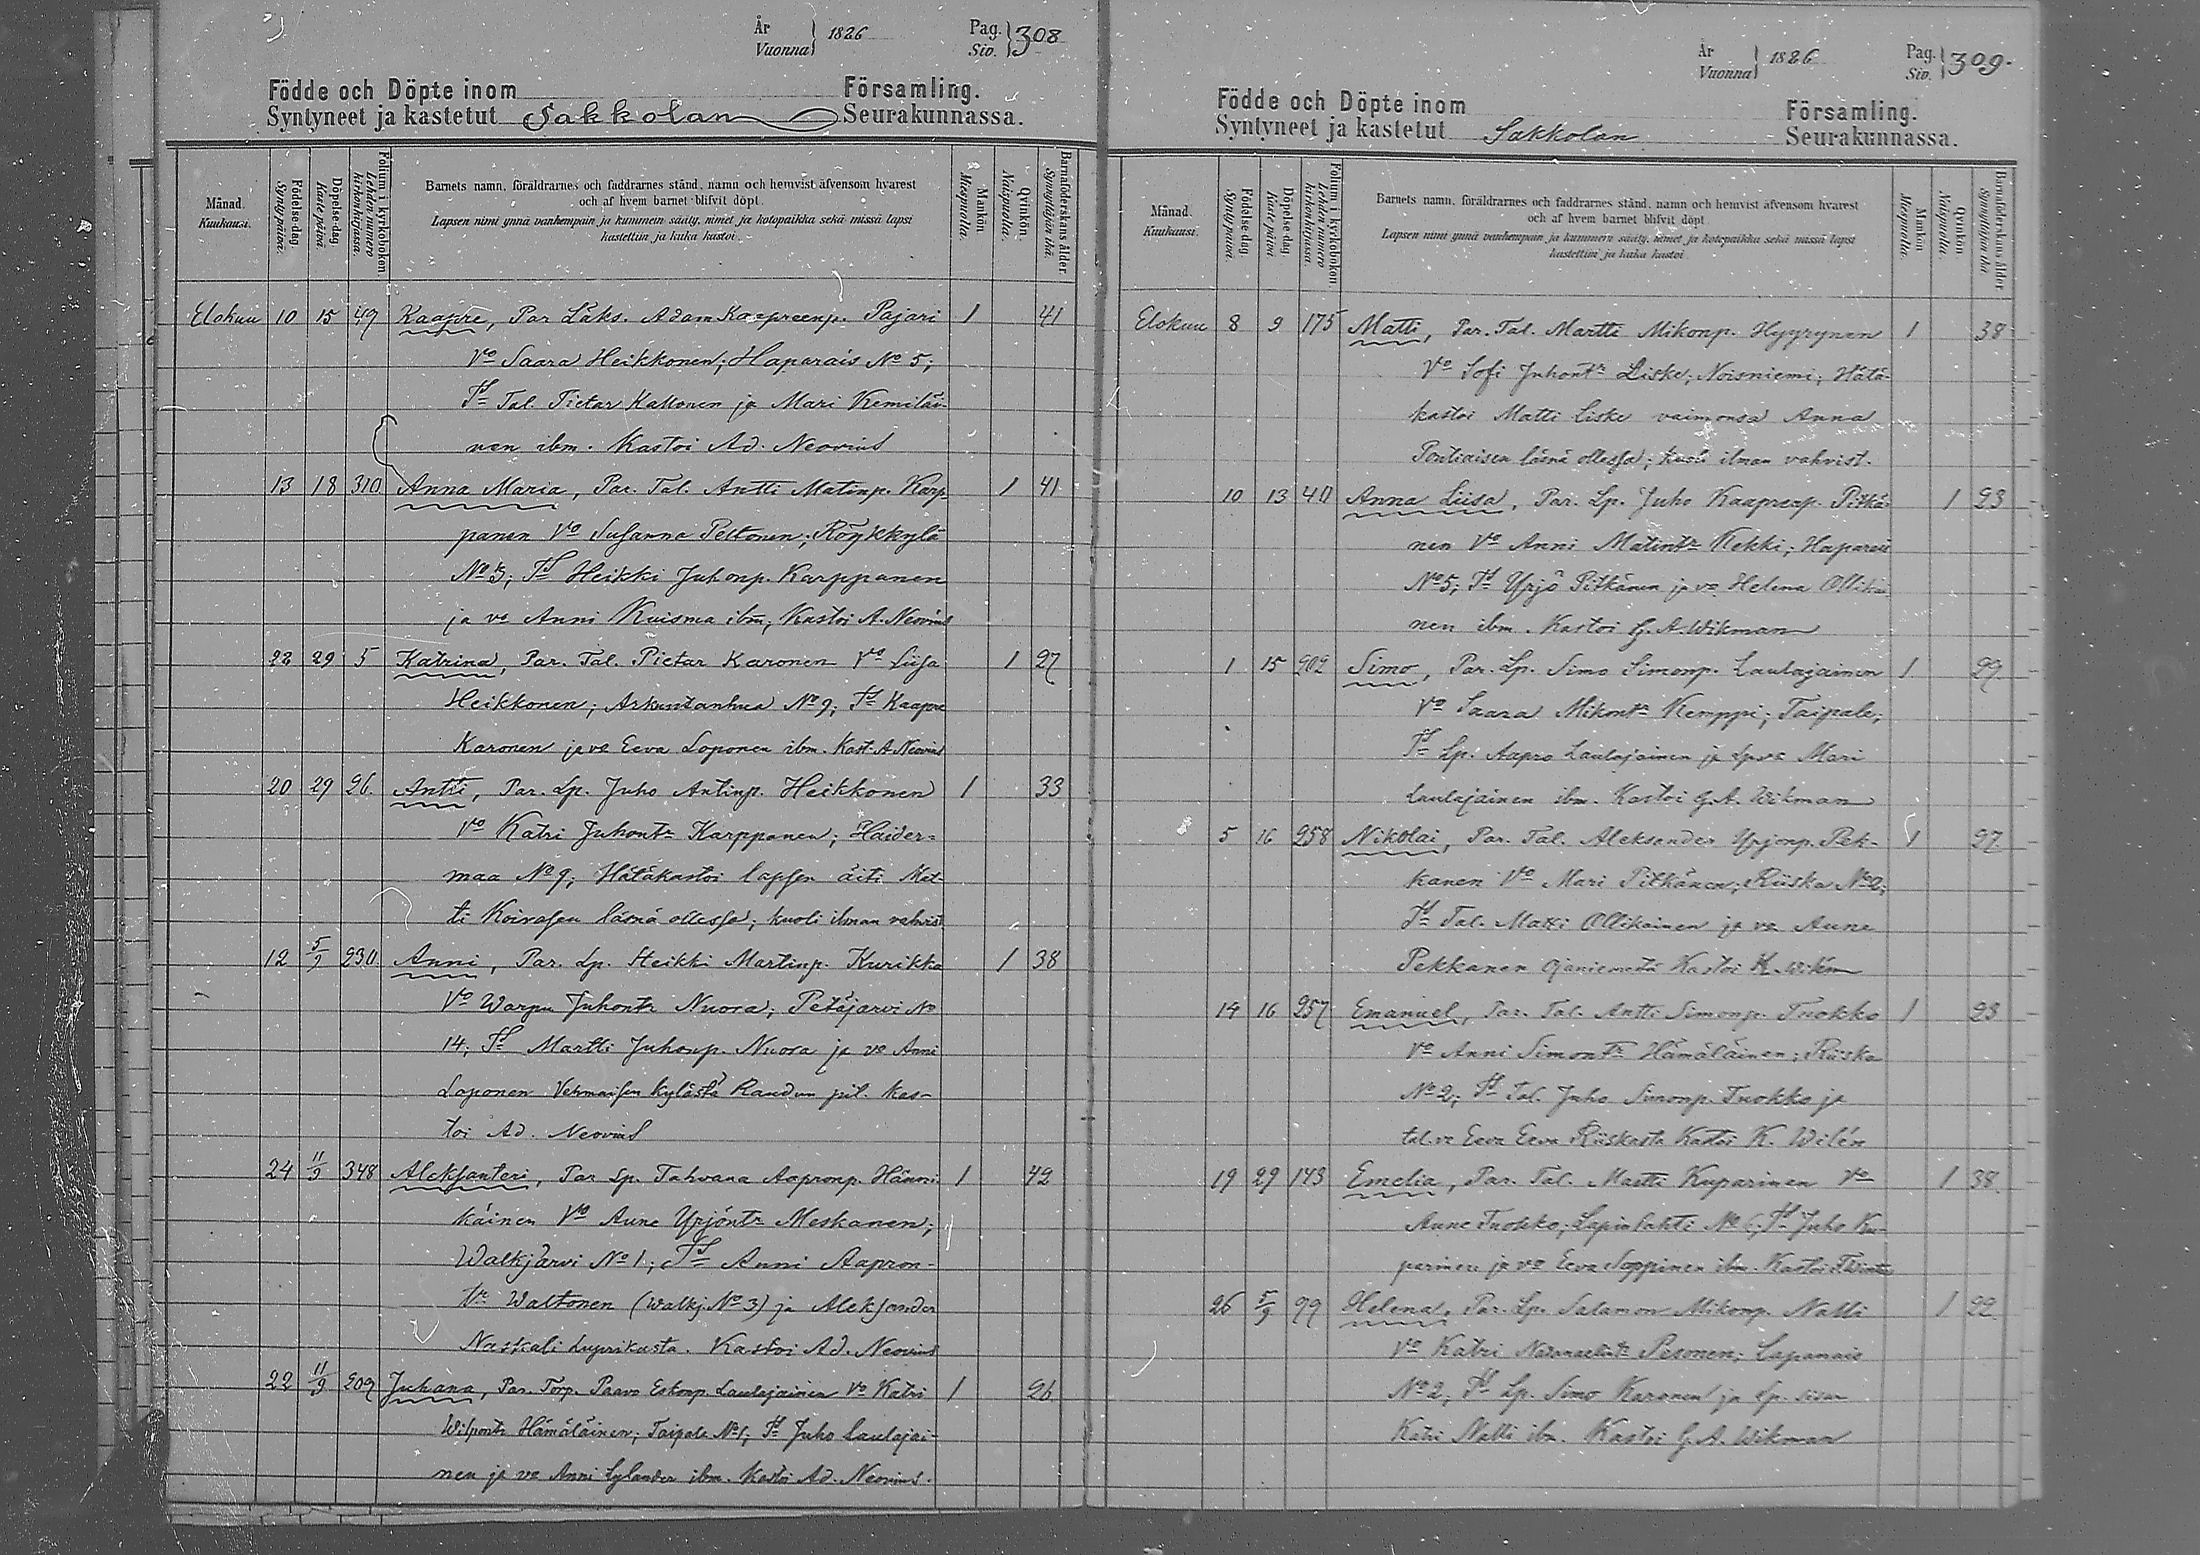 År
Vuonna } 1826
Pag.
Siv. } 308
Födde och Döpte inom Församling.
Syntyneet ja kastetut Sakkolan Seurakunnassa.
Månad.
Kuukausi.
Födelse-dag
Syntypäivä.
Döpelse-dag
Kastepäivä
Folium i kyrkoboken.
Lehden numero kirkonkirjassa.
Barnets namn, föräldrarnes och faddrarnes stånd, namn och hemvist äfvensom hvarest
och af hvem barnet blifvit döpt.
Lapsen nimi ynnä vanhempain ja kummein sääty, nimet ja kotopaikka sekä missä lapsi
kastettiin ja kuka kastoi.
Mankön
Miespuolia.
Qvinkön.
Naispuolia.
Barnaföderskans ålder.
Synnyttäjän ikä.
Elokuu 10 15 49 Kaapre, Par Läks. Adam Kaapreenp. Pajari 1 41
Vo Saara Heikkonen; Haparais No 5;
Td Tal. Pietar Kallonen ja Mari Kemiläi-
nen ibm. Kastoi Ad. Neovius
13 18 310 Anna Maria, Par. Tal. Antti Matinp. Karp 1 41
panen Vo Susanna Peltonen; Röykkylä
No 3; Td Heikki Juhonp. Karppanen
ja vo Anni Kuisma ibm; Kastoi A. Neovius
22 29 5 Katrina, Par. Tal. Pietar Karonen Vo Liisa 1 27
Heikkonen; Arkuntanhua No 9; Td Kaapre
Karonen ja vo Eeva Loponen ibm. Kast. A. Neovius
20 29 26 Antti, Par. Lp. Juho Antinp. Heikkonen 1 33
Vo Katri Juhontr Karppanen; Haider-
maa No 9; Hätäkastoi lapsen äiti Mat-
ti Koivosen läsnä ollessa; kuoli ilman vahvist
12 5/9 230 Anni, Par. Lp. Heikki Martinp. Kurikka 1 38
Vo Warpu Juhontr Nuora; Petäjärvi No
14; Td Martti Juhonp. Nuora ja vo Anni
Loponen Vehmaisen kylästä Raudun pit. Kas-
toi Ad. Neovius
24 11/9 348 Aleksanteri, Par Lp. Tahvana Aapronp. Hänni- 1 42
käinen Vo Aune Yrjöntr Meskanen;
Walkjärvi No 1; Td Anni Aapron-
tr Waltonen (Walkj. No 3) ja Aleksander
Naskali. Kastoi Ad. Neovius
22 11/9 209 Juhana, Par. Torp. Paavo Eskonp. Laulajainen Vo Katri 1 26
Hämäläinen; Taipale No 1; Td Juho Laulajai-
nen ja vo Anni Sylander ibm. Kastoi Ad. Neovius.
År
Vuonna } 1826
Pag.
Siv. } 309.
Födde och Döpte inom Församling.
Syntyneet ja kastetut Sakkolan Seurakunnassa.
Månad.
Kuukausi.
Födelse-dag
Syntypäivä.
Döpelse-dag
Kastepäivä
Folium i kyrkoboken.
Lehden numero kirkonkirjassa.
Barnets namn, föräldrarnes och faddrarnes stånd, namn och hemvist äfvensom hvarest
och af hvem barnet blifvit döpt.
Lapsen nimi ynnä vanhempain ja kummein sääty, nimet ja kotopaikka sekä missä lapsi
kastettiin ja kuka kastoi.
Mankön
Miespuolia.
Qvinkön
Naispuolia.
Barnaföderskans ålder.
Synnyttäjän ikä.
Elokuu 8 9 175 Matti, Par. Tal. Martti Mikonp. Hyyrynen 1 38
Vo Sofi Juhontr Liske; Noisniemi; Hätä-
kastoi Matti Liske vaimonsa Anna
Pontiaisen läsnä ollessa; kuoli ilman vahvist.
10 13 40 Anna Liisa, Par. Lp. Juho Kaapreep. Pitkä- 1 23
nen Vo Anni Matintr Kekki; Haparais
No 5; Td Yrjö Pitkänen ja vo Helena Ollikai
nen ibm. Kastoi G. A. Wikman
1 15 202 Simo, Par. Lp. Simo Simonp. Laulajainen 1 29
Vo Saara Mikontr Kemppi; Taipale;
Td Lp. Aapro Laulajainen ja Lp vo Mari
Laulajainen ibm. Kastoi G. A. Wikman
5 16 258 Nikolai, Par. Tal. Aleksander Yrjönp. Pek- 1 27
kanen Vo Mari Pitkänen; Riiska No 2;
Td Tal. Matti Ollikainen ja vo Aune
Pekkanen Ojaniemestä Kastoi
14 16 257 Emanuel, Par. Tal. Antti Simonp. Tuokko 1 23
Vo Anni Simontr Hämäläinen; Riiska
No 2; Td Tal. Juho Simonp. Tuokko ja
tal. vo Eeva Eeva Riiskasta Kastoi K. Wilén
19 29 143 Emelia, Par. Tal. Martti Kuparinen Vo 1 38
Aune Tuokko; Lapinlahti No; Td Juho Ku-
parinen ja vo Eeva Soppinen ibm. Kastoi
26 5/9 99 Helena, Par. Lp. Salamon Mikonp. Natti 1 22
Vo Katri Pesonen; Lapanais
No 2; Td Lp. Simo Karonen ja Lp. sisar
Katri Natti ibm. Kastoi G. A. Wikman